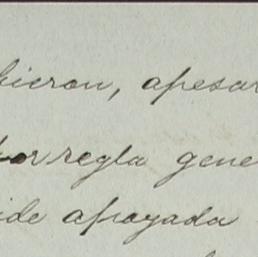 hicieron, apesar
por regla gene
ide apoyada